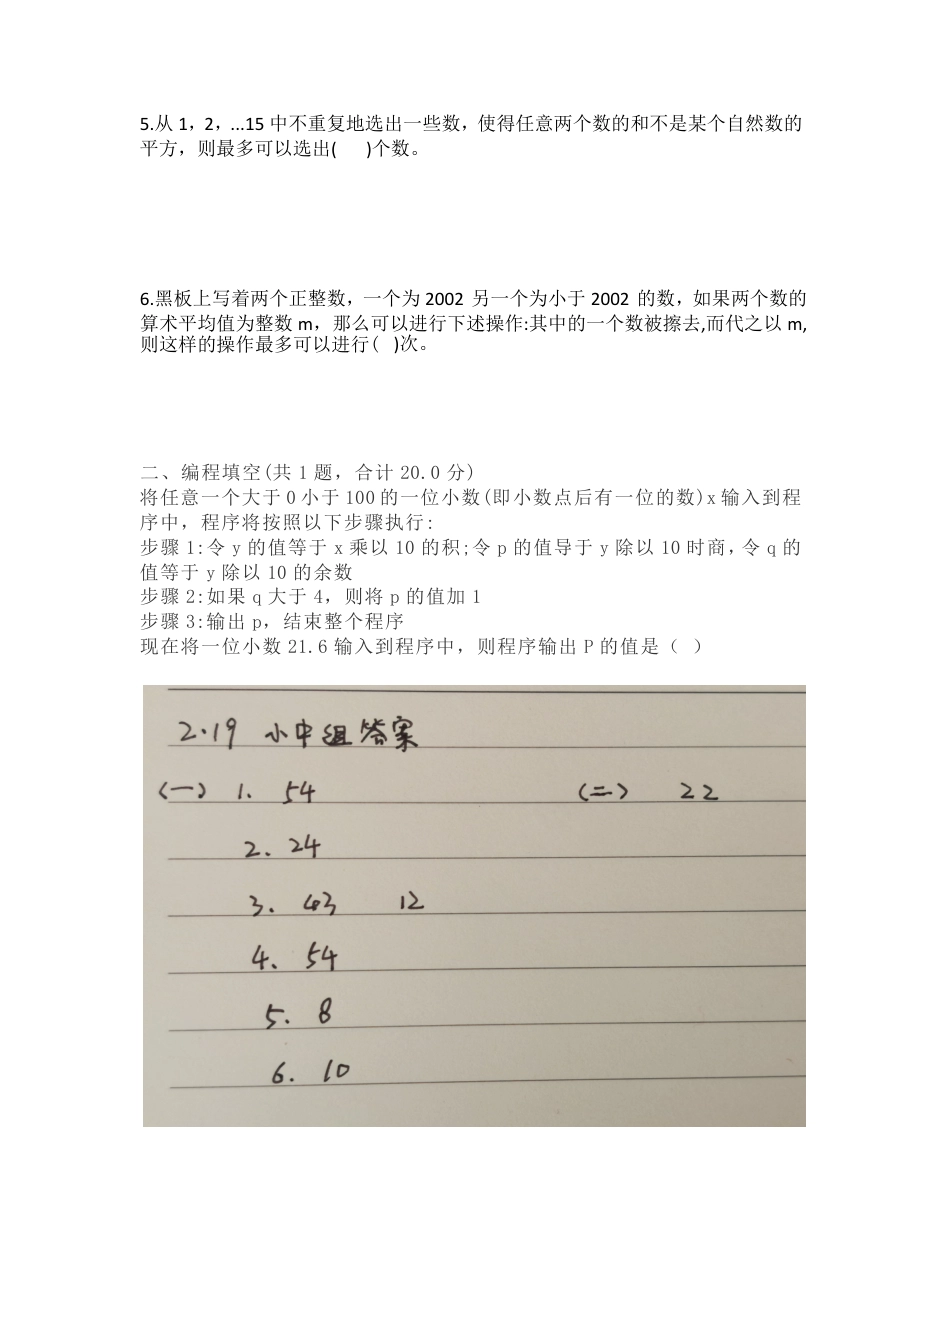 5.从 1，2，...15 中不重复地选出一些数，使得任意两个数的和不是某个自然数的
平方，则最多可以选出( )个数。
6.黑板上写着两个正整数，一个为 2002 另一个为小于 2002 的数，如果两个数的
算术平均值为整数 m，那么可以进行下述操作:其中的一个数被擦去,而代之以 m,
则这样的操作最多可以进行( )次。
二、编程填空(共 1 题，合计 20.0 分)
将任意一个大于 0 小于 100 的一位小数(即小数点后有一位的数)x 输入到程
序中，程序将按照以下步骤执行:
步骤 1:令 y 的值等于 x 乘以 10 的积;令 p 的值导于 y 除以 10 时商，令 q 的
值等于 y 除以 10 的余数
步骤 2:如果 q 大于 4，则将 p 的值加 1
步骤 3:输出 p，结束整个程序
现在将一位小数 21.6 输入到程序中，则程序输出 P 的值是（ ）
2.19 小中组答案
(一) 1. 54 (二) 22
2. 24
3. 43 12
4. 54
5. 8
6. 10